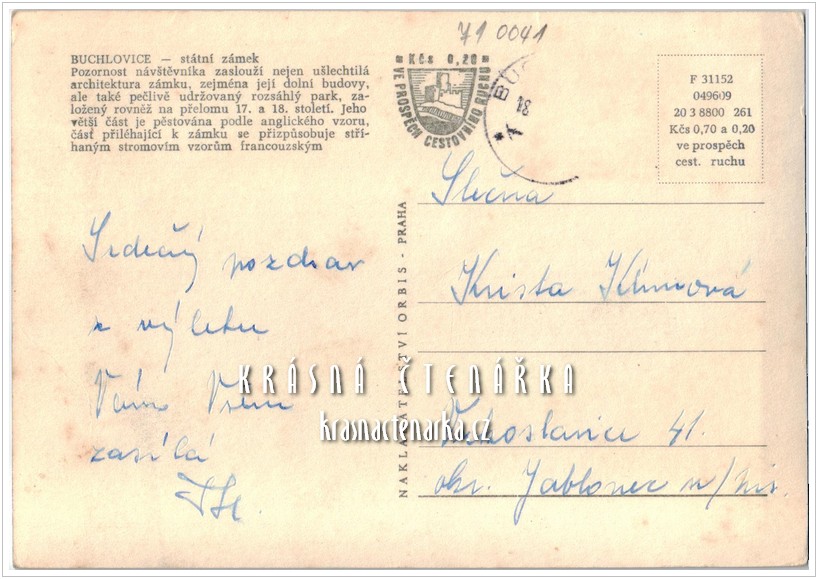 71 0041
BUCHLOVICE — státní zámek
Pozornost návštěvníka zaslouží nejen ušlechtilá
architektura zámku, zejména její dolní budovy,
ale také pečlivě udržovaný rozsáhlý park, za-
ložený rovněž na přelomu 17. a 18. století. Jeho
větší část je pěstována podle anglického vzoru,
část přiléhající k zámku se přizpůsobuje stří-
haným stromovím vzorům francouzským
Kčs 0,20
VE PROSPĚCH CESTOVNÍHO RUCHU
18
F 31152
049609
20 3 8800 261
Kčs 0,70 a 0,20
ve prospěch
cest. ruchu
Srdečný pozdrav
z výletu
Vám Všem
zasílá
NAKLADATELSTVÍ ORBIS - PRAHA
Slečna
Krista Klímová
41.
okr. Jablonec n/Nis.
KRÁSNÁ ČTENÁŘKA
krasnactenarka.cz